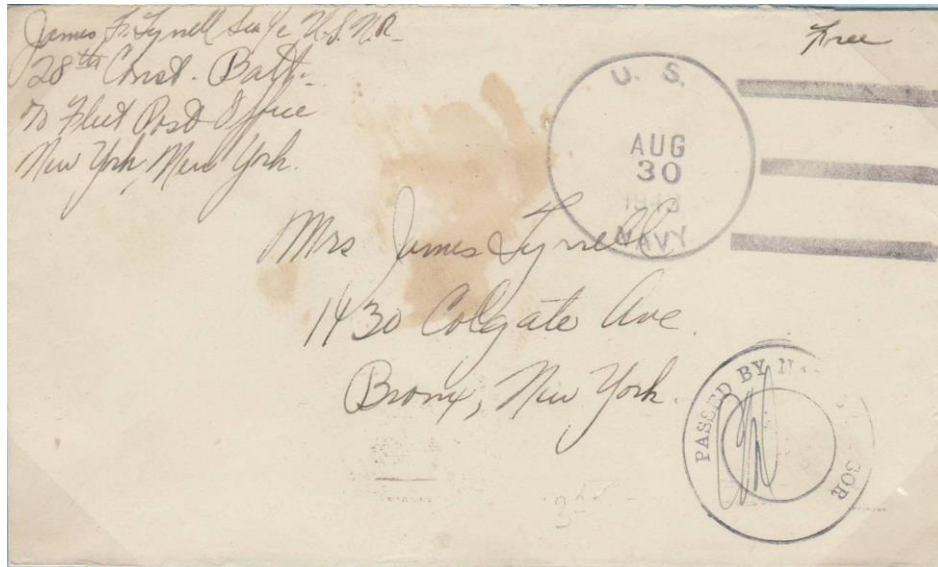 James F. Tyrrell Sea 2/c U.S.N.R.
28th Const. Batt.
℅ Fleet Post Office
New York, New York.
Free
U. S.
AUG
30
1943
NAVY
Mrs James Tyrrell
1430 Colgate Ave.
Bronx, New York.
PASSED BY